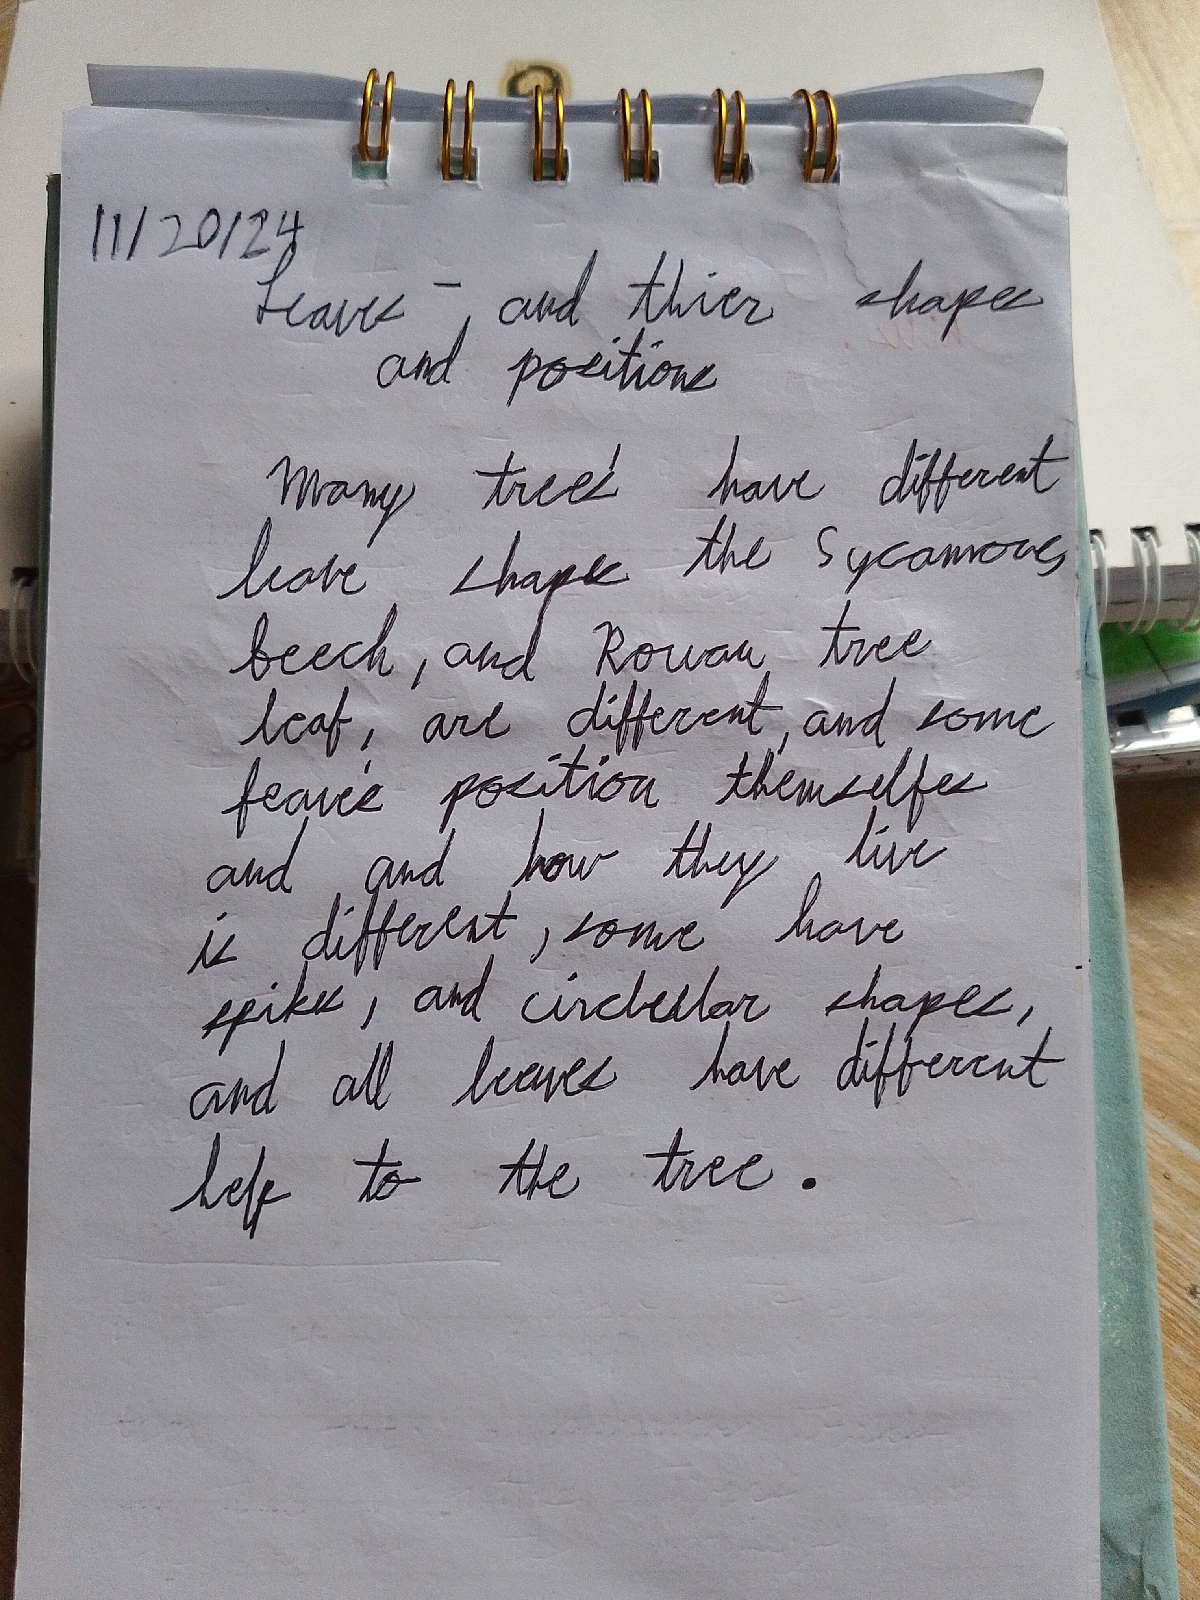 11/20/24
Leaves - and thier shapes
and positions
Many tree's have different
leave shapes the Sycamore,
beech, and Rowan tree
leaf, are different, and some
leave's position themselfes
and and how they live
is different, some have
spikes, and circlellar shapes,
and all leeaves have different
help to the tree.